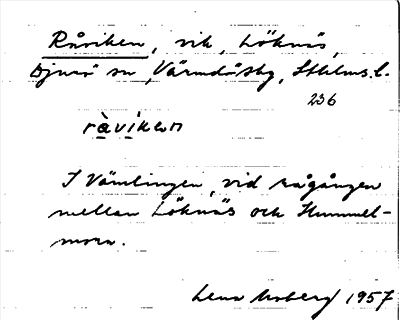 Råviken, vik, Löknäs,
Djurö sn, Värmdö sky, Sthlms l.
236
ràvikən
I Vämlingen, vid rågången
mellan Löknäs och Hummel-
mora.
Lena Moberg 1957